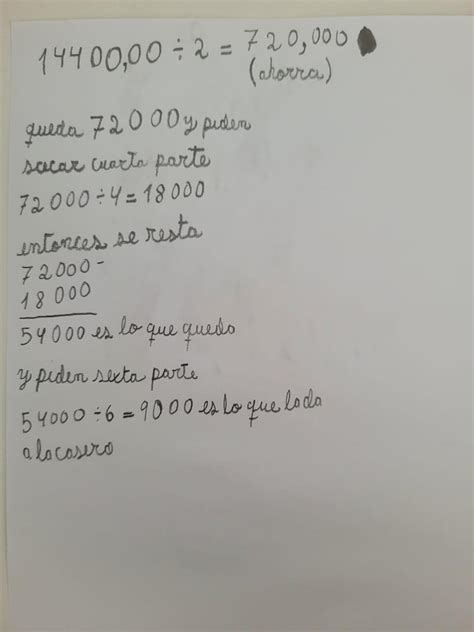 14400,00 ÷ 2 = 720,000
(ahorra)
queda 72000 y piden
sacar cuarta parte
72000 ÷ 4 = 18000
entonces se resta
72000 -
18000
54000 es lo que quedo
y piden sexta parte
54000 ÷ 6 = 9000 es lo que lada
a lacasero